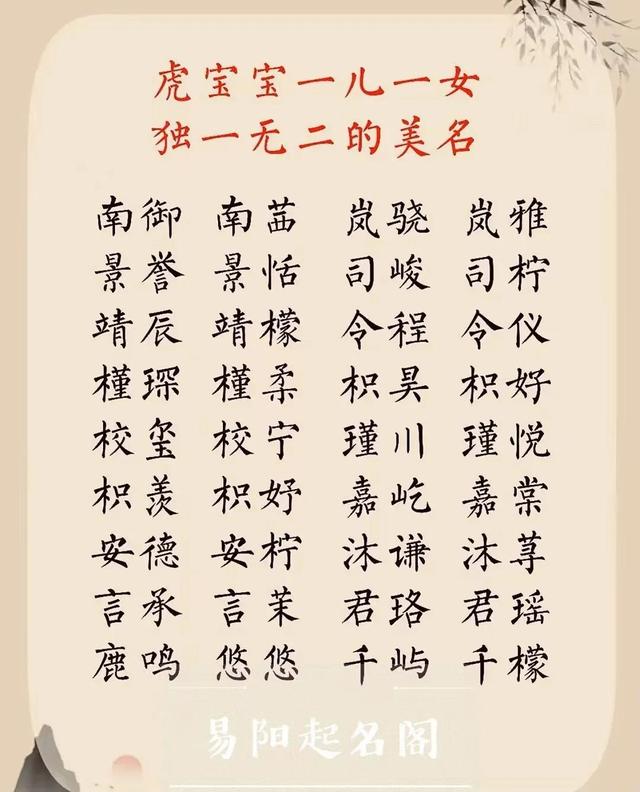 虎宝宝一儿一女
独一无二的美名
南御 南茜 岚骁 岚雅
景誉 景恬 司峻 司柠
靖辰 靖檬 令程 令仪
槿琛 槿柔 枳昊 枳好
校玺 校宁 瑾川 瑾悦
枳羡 枳妤 嘉屹 嘉棠
安德 安柠 沐谦 沐荨
言承 言茉 君珞 君瑶
鹿鸣 悠悠 千屿 千檬
易阳起名阁